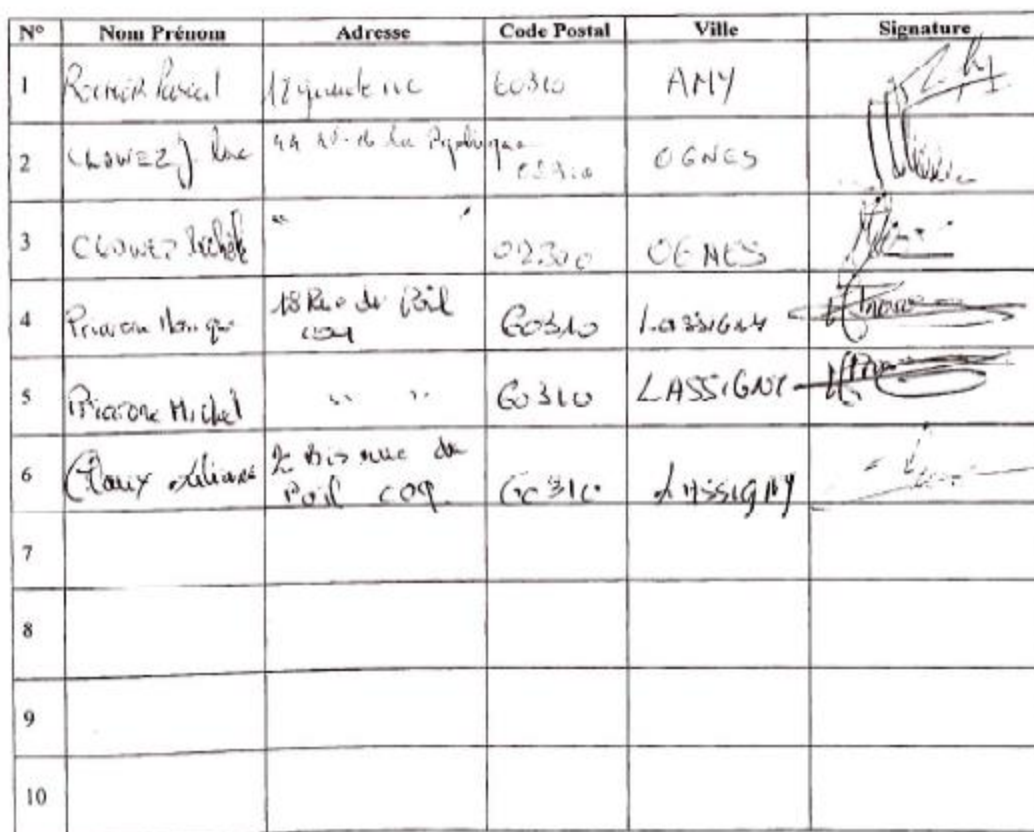 N° Nom Prénom Adresse Code Postal Ville Signature
1 Pascal 12 grande rue 60310 AMY
2 CLOWEZ J. Luc 44 de la République OGNES
3 CLOWEZ Michèle " " 02300 OGNES
4 Priarone Monique 18 Rue du Poil
coq 60310 LASSIGNY
5 Priarone Michel " " 60310 LASSIGNY
6 Claux Liliane 2 bis rue du
Poil coq 60310 LASSIGNY
7
8
9
10